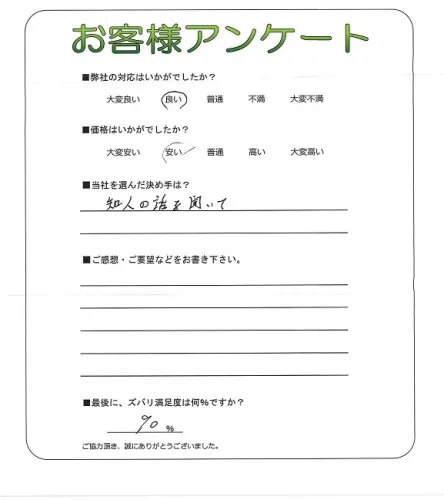 お客様アンケート
■弊社の対応はいかがでしたか？
大変良い 良い 普通 不満 大変不満
■価格はいかがでしたか？
大変安い 安い 普通 高い 大変高い
■当社を選んだ決め手は？
知人の話を聞いて
■ご感想・ご要望などをお書き下さい。
■最後に、ズバリ満足度は何%ですか？
90 %
ご協力頂き、誠にありがとうございました。